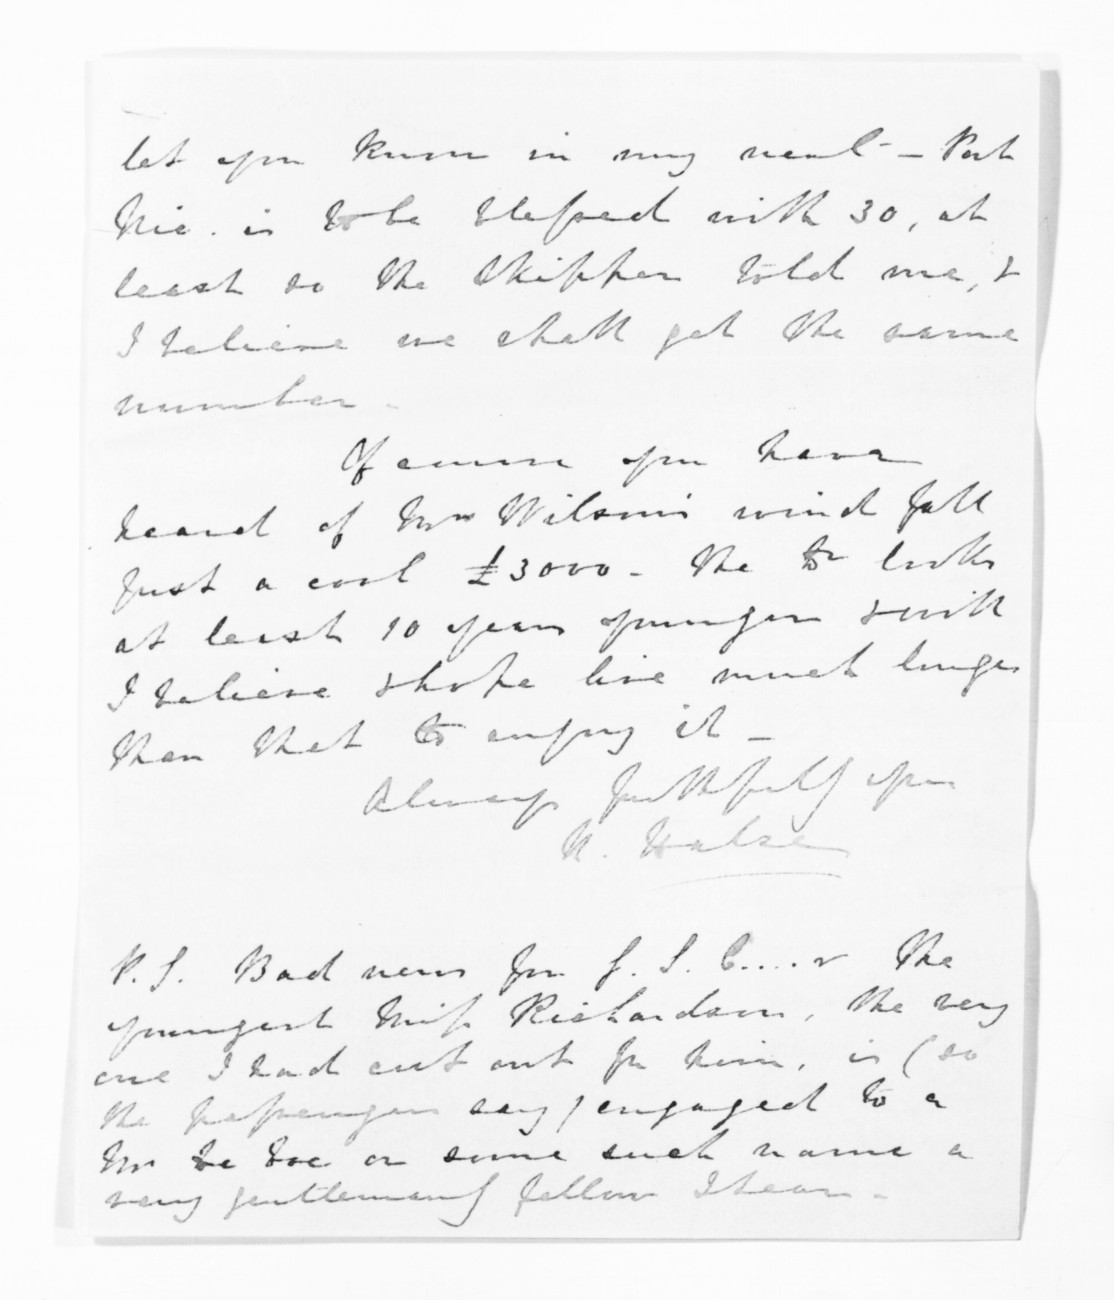 let you know in my next - Port
Nic. is to be blessed with 30, at
least so the Skipper told me, &
I believe we shall get the same
number -
Of course you have
heard of Mrs Wilson's wind fall
just a cool £3000 - The Dr looks
at least 10 years younger & will
I believe & hope live much longer
than that to enjoy it -
Always faithfully yrs
H. Halse
P.S. Bad news for J. S. C....r The
youngest Miss Richardson, the very
one I had cut out for him, is (so
the passengers say) engaged to a
Mr or some such name a
very gentlemanly fellow I hear -